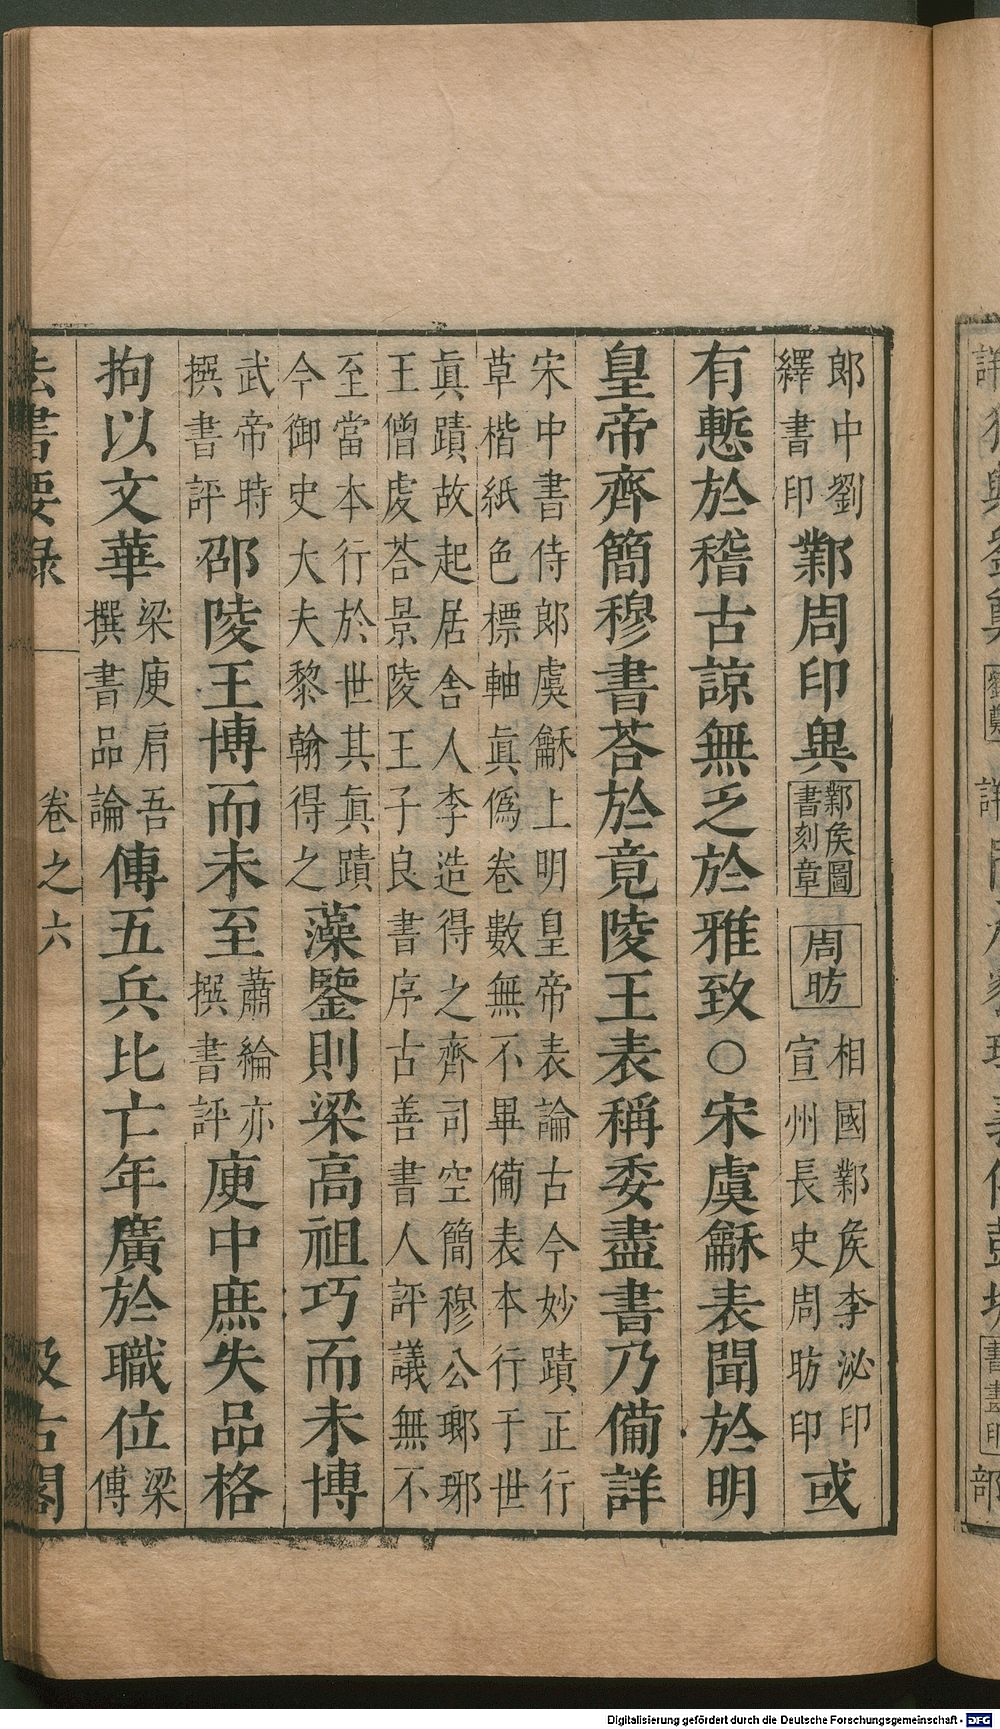 郎中劉繹書印鄴周印與鄴矦圖書刻章周昉相國鄴矦李泌印宣州長史周昉印或
有慙於稽古諒無乏於雅致○宋虞龢表聞於明
皇帝齊簡穆書荅於竟陵王表稱委盡書乃備詳
宋中書侍郎虞龢上明皇帝表論古今妙蹟正行
草楷紙色標軸眞僞卷數無不畢備表本行于世
眞蹟故起居舍人李造得之齊司空簡穆公瑯琊
王僧虔荅景陵王子良書序古善書人評議無不
至當本行於世其眞蹟今御史大夫黎翰得之藻鑒則梁高祖巧而未博
武帝時撰書評邵陵王博而未至蕭綸亦撰書評庾中庶失品格
拘以文華梁庾肩吾撰書品論傳五兵比亡年廣於職位梁傅
法書要錄
卷之六
汲古閣
書畫印
部
Digitalisierung gefördert durch die Deutsche Forschungsgemeinschaft - DFG